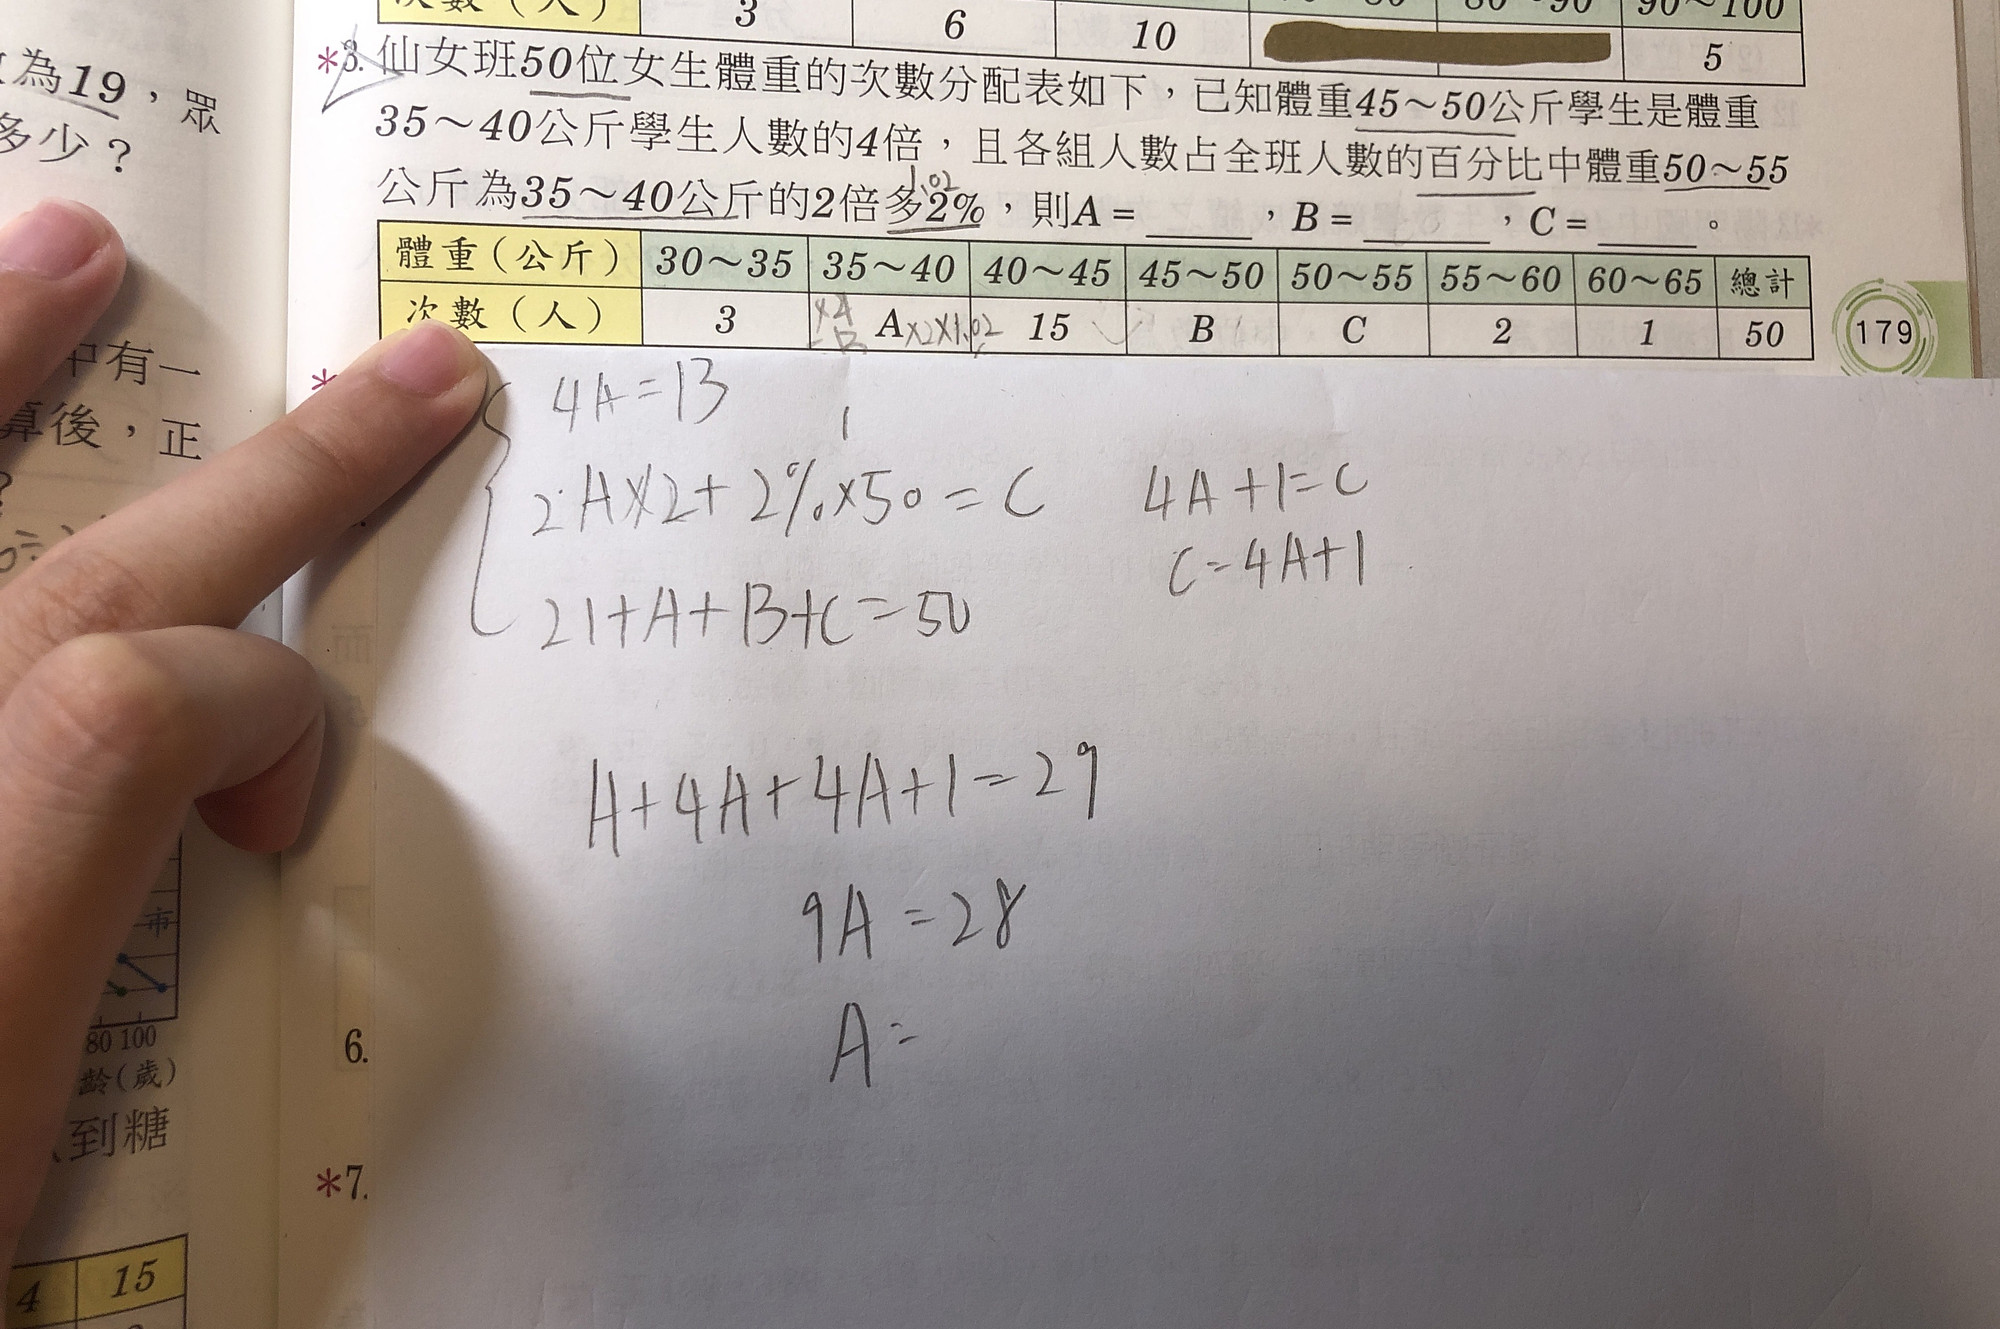 次數(人) 3 6 10 90~100 5
為19，眾
多少？
中有一
算後，正
？
市
80 100
齡(歲)
到糖
4 15
*3. 仙女班50位女生體重的次數分配表如下，已知體重45～50公斤學生是體重
35～40公斤學生人數的4倍，且各組人數占全班人數的百分比中體重50～55
1.02
公斤為35～40公斤的2倍多2%，則A= ＿＿＿，B= ＿＿＿，C= ＿＿＿。
體重(公斤) 30～35 35～40 40～45 45～50 50～55 55～60 60～65 總計
次數(人) 3 ×4 =B A×2×1.02 15 B C 2 1 50
179
*
4A=B
1
2A×2+2%×50=C 4A+1=C
C=4A+1
21+A+B+C=50
A+4A+4A+1=29
9A=28
A=
6.
*7.